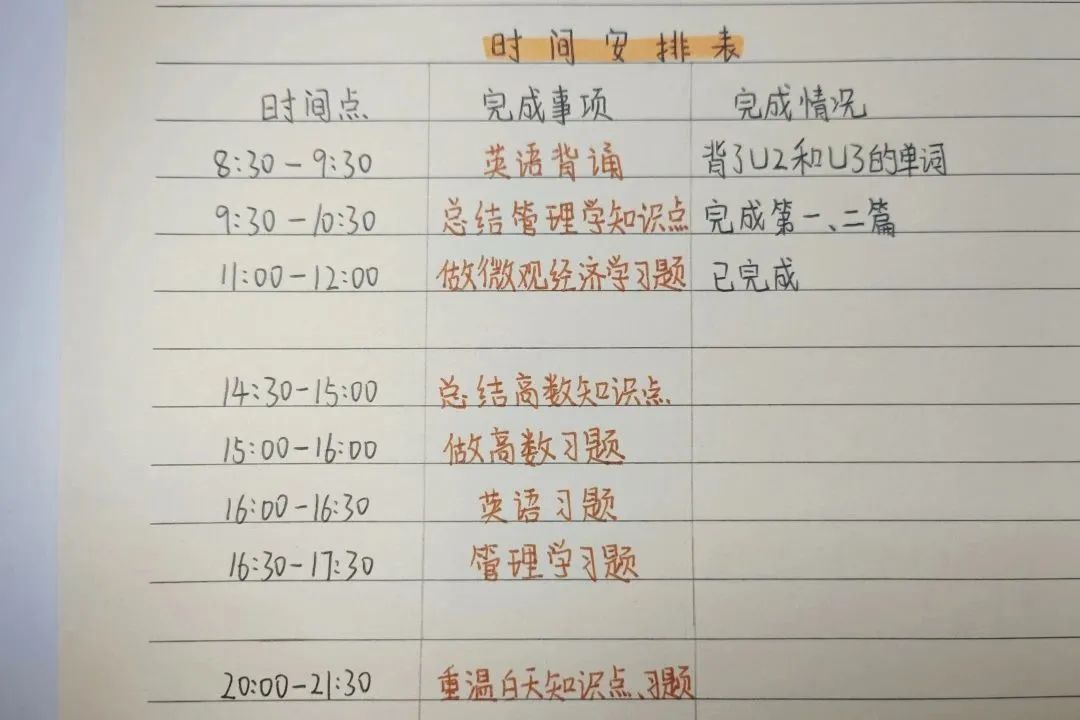 时间安排表
时间点 完成事项 完成情况
8:30-9:30 英语背诵 背了U2和U3的单词
9:30-10:30 总结管理学知识点 完成第一、二篇
11:00-12:00 做微观经济学习题 已完成
14:30-15:00 总结高数知识点
15:00-16:00 做高数习题
16:00-16:30 英语习题
16:30-17:30 管理学习题
20:00-21:30 重温白天知识点、习题